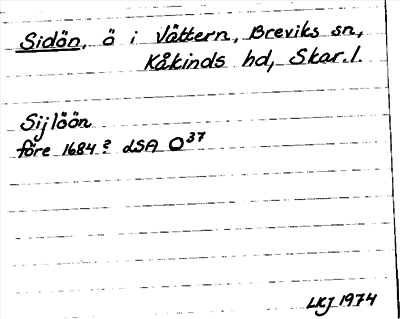 Sidön, ö i Vättern, Breviks sn,
Kåkinds hd, Skar.l.
Sijlöön
före 1684? LSA O37
LKJ 1974